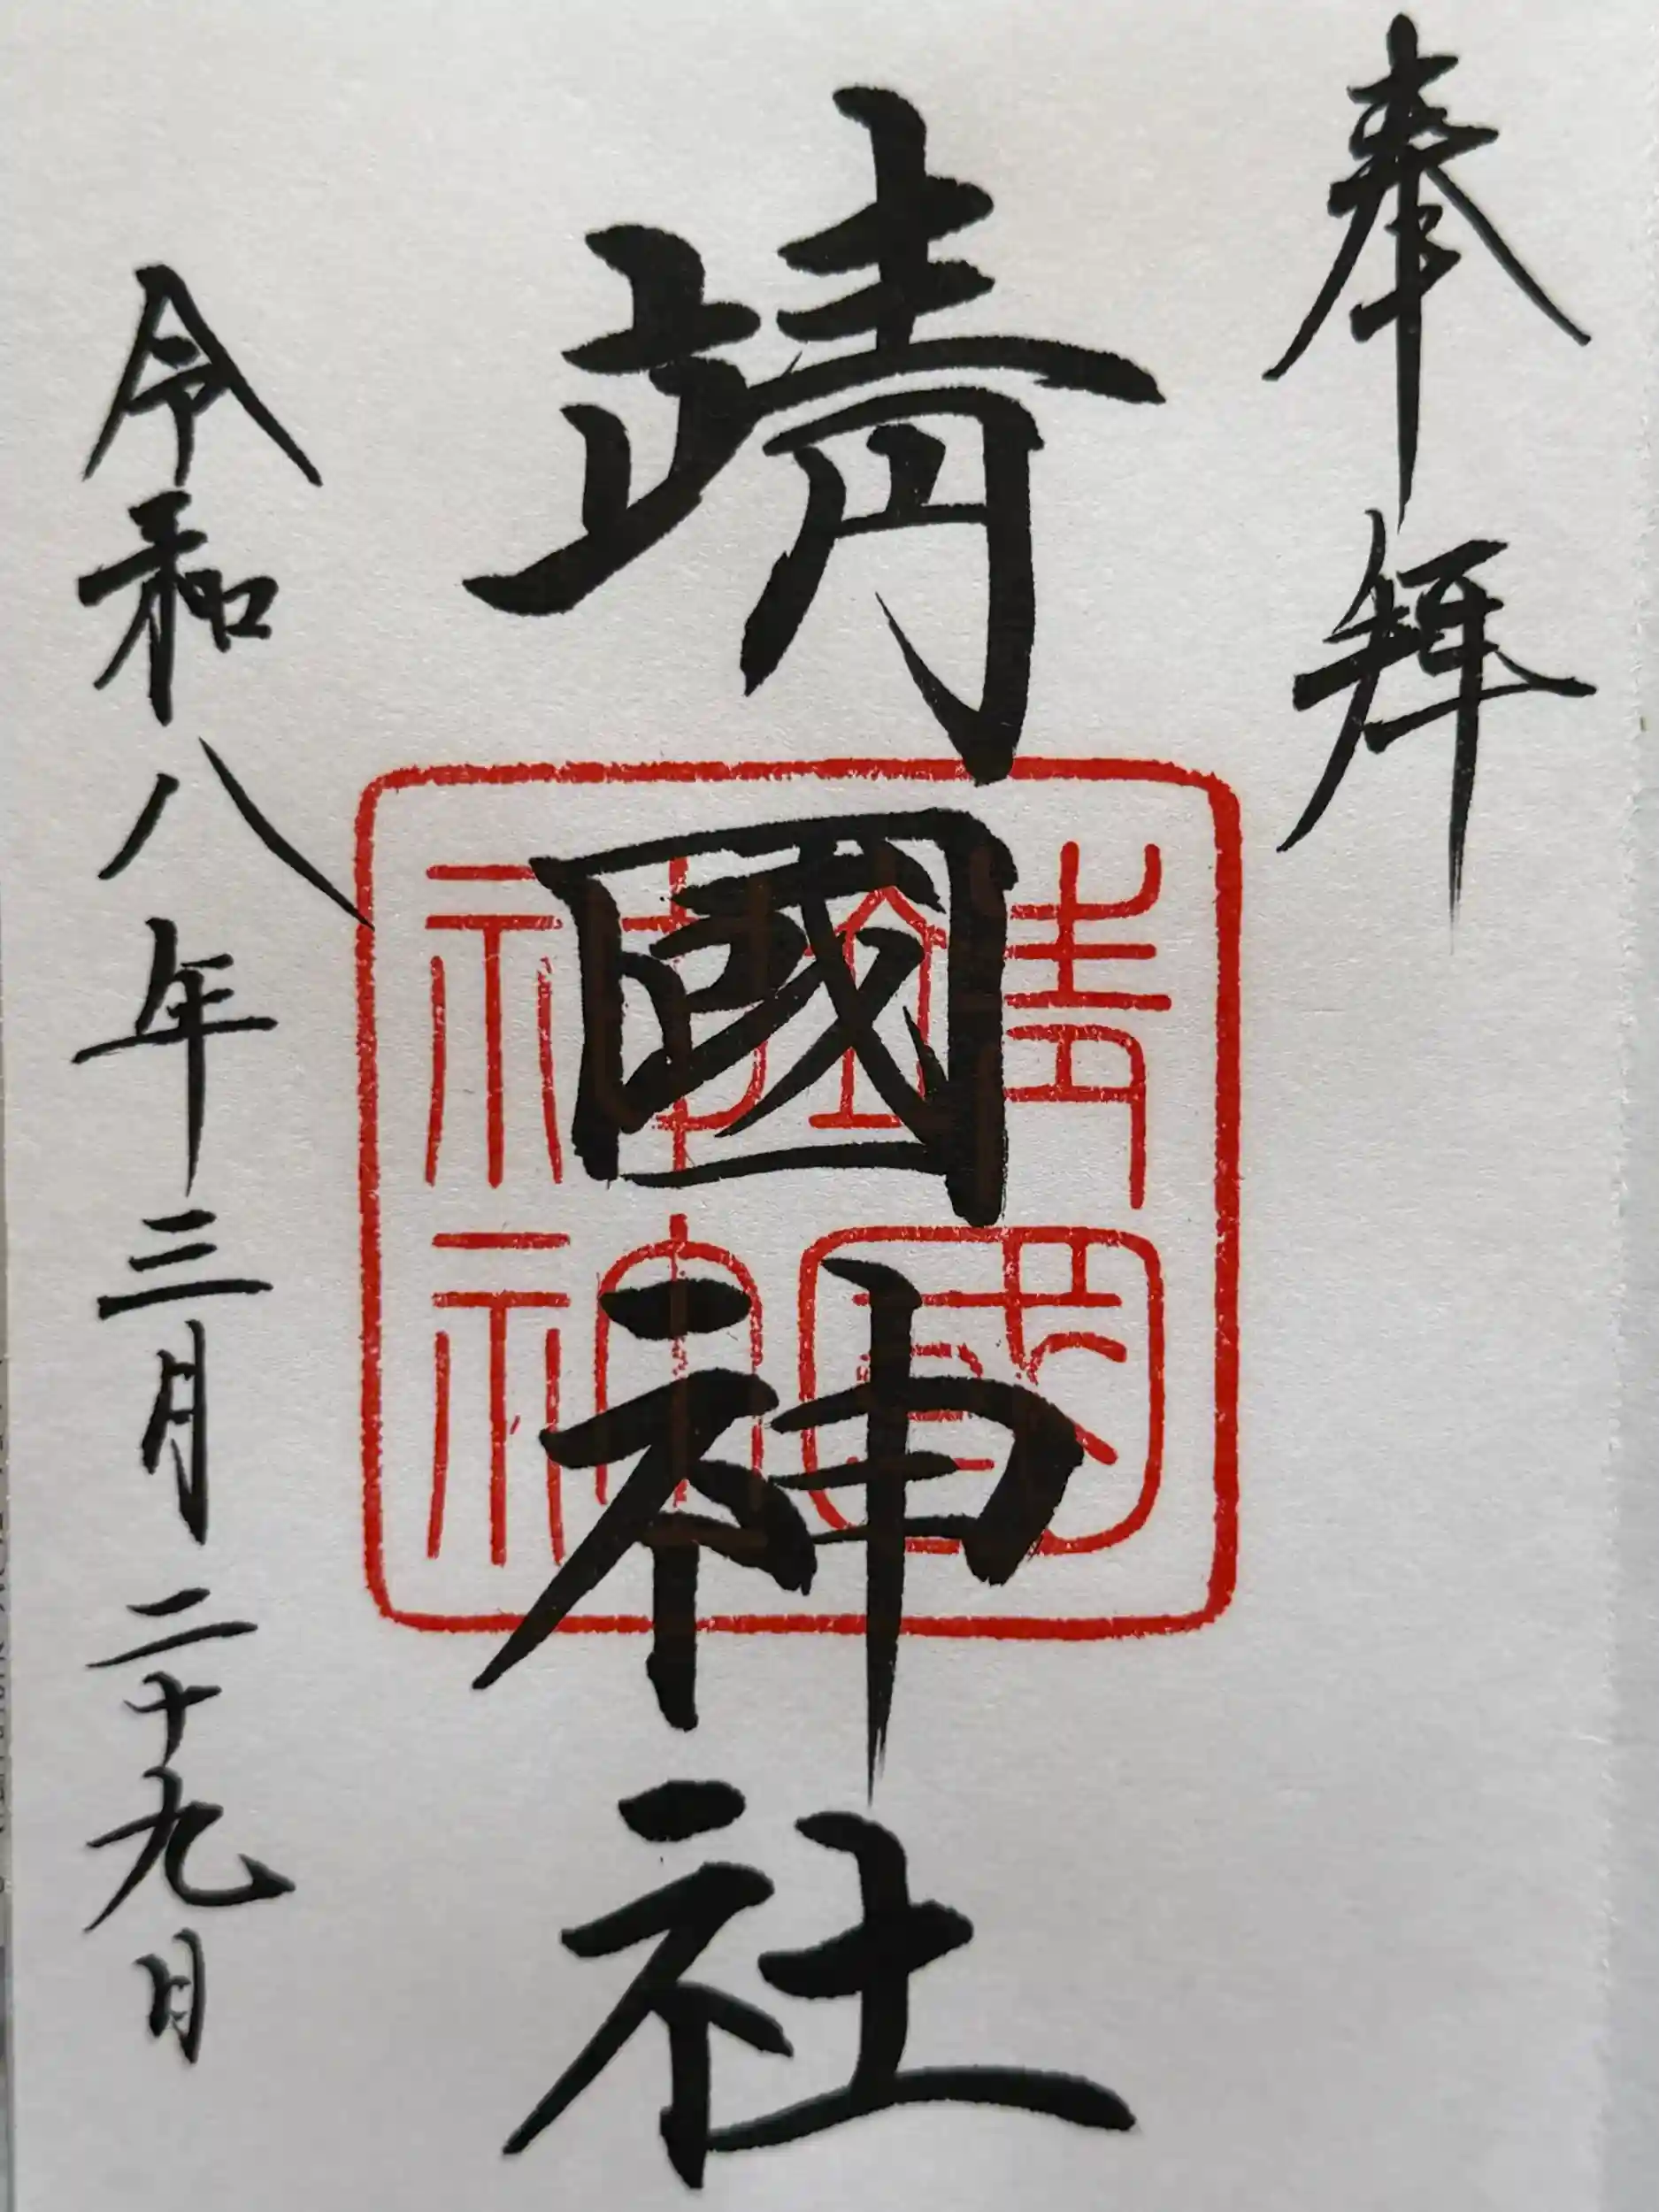 奉拝
靖國神社
靖國神社
令和八年三月二十九日